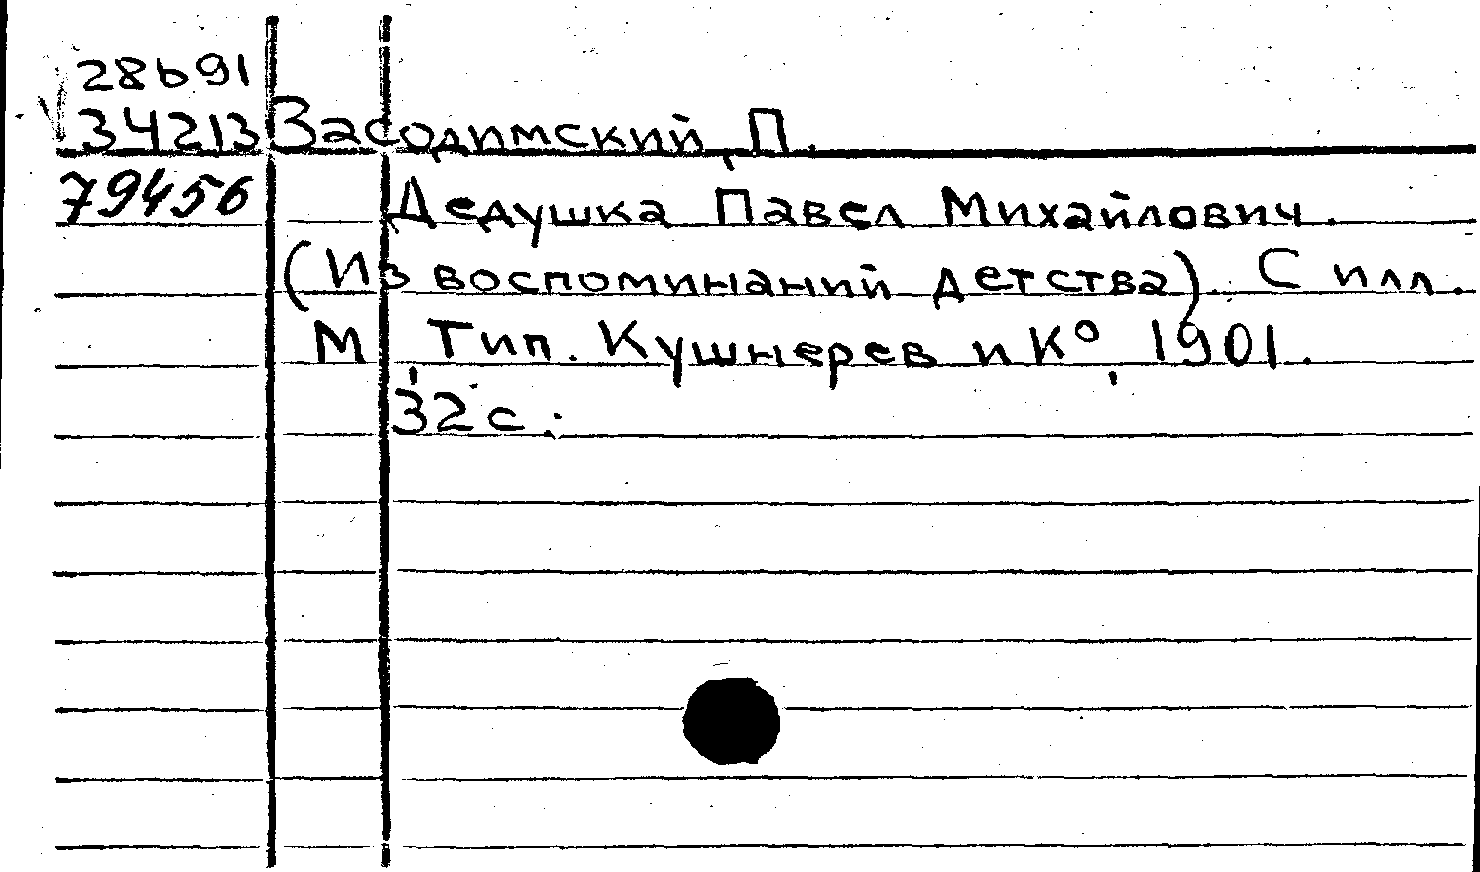 28691
34213 Засодимский, П.
79456 Дедушка Павел Михайлович.
(Из воспоминаний детства). С илл.
М. Тип. Кушнерев и К°, 1901.
32 с.